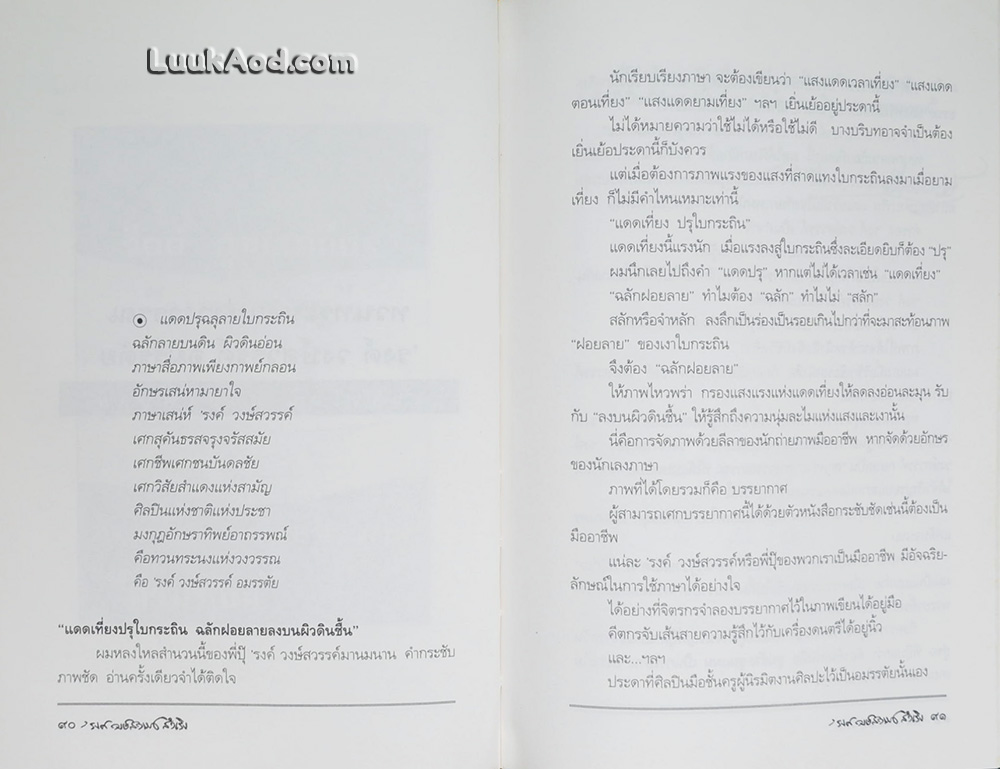 LuukAod.com
แดดปรุฉลุลายใบกระถิน
ฉลักลายบนดิน ผิวดินอ่อน
ภาษาสื่อภาพเพียงกาพย์กลอน
อักษรเสน่หามายาใจ
ภาษาเสน่ห์ 'รงค์ วงษ์สวรรค์
เศกสุคันธรสจรุงจรัสสมัย
เศกชีพเศกชนบันดลชัย
เศกวิสัยสำแดงแห่งสามัญ
ศิลปินแห่งชาติแห่งประชา
มงกุฎอักษราทิพย์อาถรรพณ์
คือทวนทระนงแห่งวงวรรณ
คือ 'รงค์ วงษ์สวรรค์ อมรรตัย
"แดดเที่ยงปรุใบกระถิน ฉลักฝอยลายลงบนผิวดินชื้น"
ผมหลงใหลสำนวนนี้ของพี่ปุ๊ 'รงค์ วงษ์สวรรค์มานมนาน คำกระชับ
ภาพชัด อ่านครั้งเดียวจำได้ติดใจ
๙๐
นักเรียบเรียงภาษา จะต้องเขียนว่า "แสงแดดเวลาเที่ยง" "แสงแดด
ตอนเที่ยง" "แสงแดดยามเที่ยง" ฯลฯ เยิ่นเย้ออยู่ประดานี้
ไม่ได้หมายความว่าใช้ไม่ได้หรือใช้ไม่ดี บางบริบทอาจจำเป็นต้อง
เยิ่นเย้อประดานี้ก็บังควร
แต่เมื่อต้องการภาพแรงของแสงที่สาดแทงใบกระถินลงมาเมื่อยาม
เที่ยง ก็ไม่มีคำไหนเหมาะเท่านี้
"แดดเที่ยง ปรุใบกระถิน"
แดดเที่ยงนี้แรงนัก เมื่อแรงลงสู่ใบกระถินซึ่งละเอียดยิบก็ต้อง "ปรุ"
ผมนึกเลยไปถึงคำ "แดดปรุ" หากแต่ไม่ได้เวลาเช่น "แดดเที่ยง"
"ฉลักฝอยลาย" ทำไมต้อง "ฉลัก" ทำไมไม่ "สลัก"
สลักหรือจำหลัก ลงลึกเป็นร่องเป็นรอยเกินไปกว่าที่จะมาสะท้อนภาพ
"ฝอยลาย" ของเงาใบกระถิน
จึงต้อง "ฉลักฝอยลาย"
ให้ภาพไหวพร่า กรองแสงแรงแห่งแดดเที่ยงให้ลดลงอ่อนละมุน รับ
กับ "ลงบนผิวดินชื้น" ให้รู้สึกถึงความนุ่มละไมแห่งแสงและเงานั้น
นี่คือการจัดภาพด้วยลีลาของนักถ่ายภาพมืออาชีพ หากจัดด้วยอักษร
ของนักเลงภาษา
ภาพที่ได้โดยรวมก็คือ บรรยากาศ
ผู้สามารถเศกบรรยากาศนี้ได้ด้วยตัวหนังสือกระชับชัดเช่นนี้ต้องเป็น
มืออาชีพ
แน่ละ 'รงค์ วงษ์สวรรค์หรือพี่ปุ๊ของพวกเราเป็นมืออาชีพ มีอัจฉริย-
ลักษณ์ในการใช้ภาษาได้อย่างใจ
ได้อย่างที่จิตรกรจำลองบรรยากาศไว้ในภาพเขียนได้อยู่มือ
คีตกรจับเส้นสายความรู้สึกไว้กับเครื่องดนตรีได้อยู่นิ้ว
และ...ฯลฯ
ประดาที่ศิลปินมือชั้นครูผู้นิรมิตงานศิลปะไว้เป็นอมรรตัยนั้นเอง
๙๑